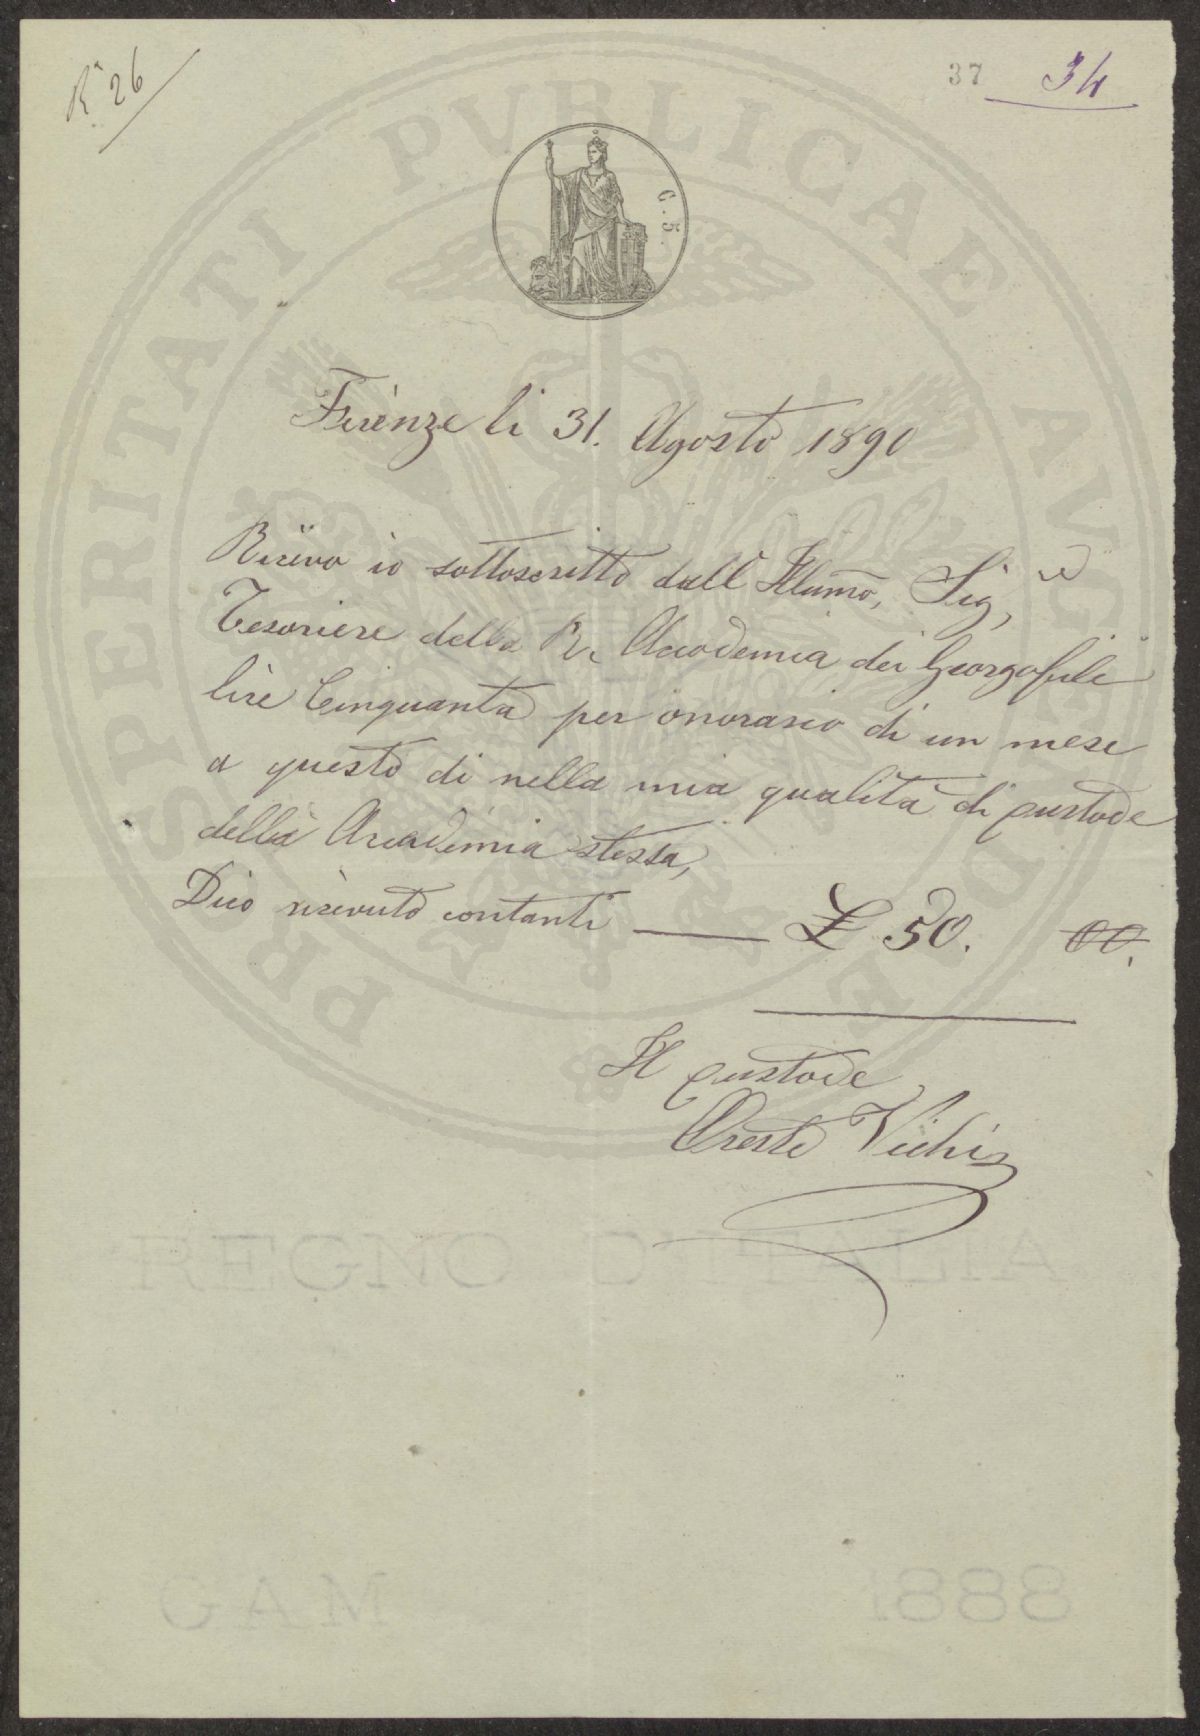 Rª 26
37 34
PROSPERITATI PVBLICAE AVGENDAE
G. 5.
Firenze li 31. Agosto 1890
Ricevo io sottoscritto dall' Illumo, Sig,re
Tesoriere della R. Accademia dei Georgofili
lire Cinquanta per onorario di un mese
a questo di nella mia qualità di custode
della Accademia stessa,
Dico ricevuto contanti —— £ 50. 00.
Il custode
Oreste Vichi
REGNO D'ITALIA
GAM 1888